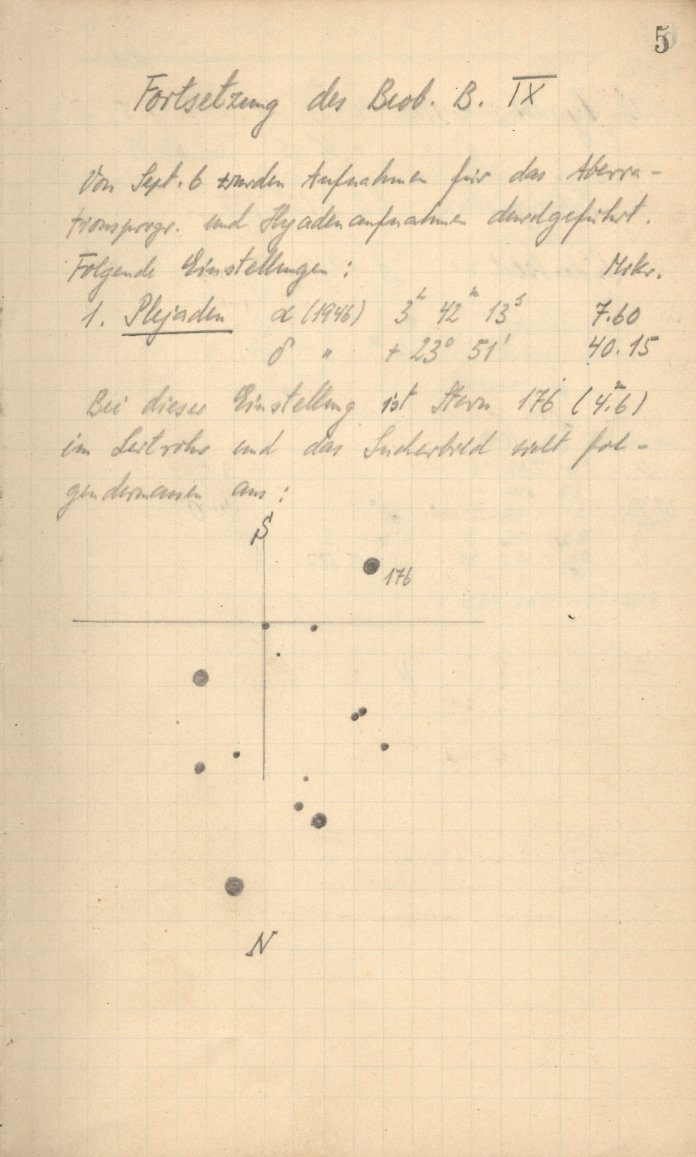 5
Fortsetzung des Beob. B. IX
Von Sept. 6 wurden Aufnahmen für das Aberra-
tionsprogr. und Hyadenaufnahmen durchgeführt.
Folgende Einstellungen: Mikr.
1. Plejaden α (1946) 3h 42m 13s 7.60
δ " + 23° 51' 40.15
Bei dieser Einstellung ist Stern 176 (4.m6)
im Leitrohr und das Sucherbild sieht fol-
gendermassen aus:
S
176
N